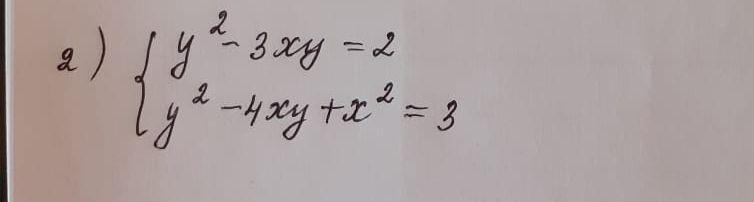 2) { y² - 3xy = 2
y² - 4xy + x² = 3